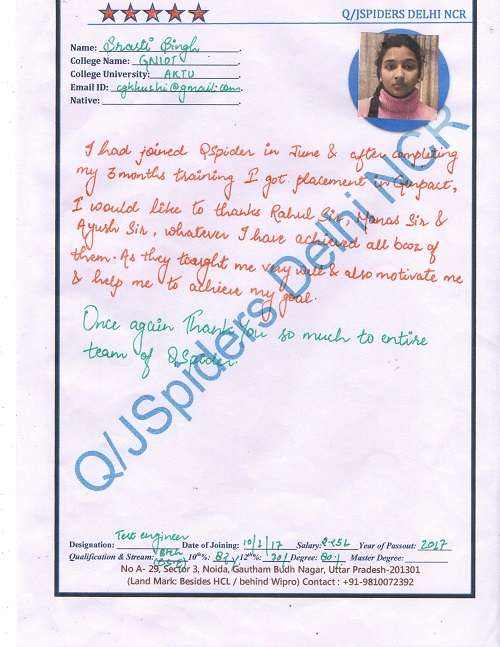 Q/JSPIDERS DELHI NCR
Name: Srasti Singh
College Name: GNIOT
College University: AKTU
Email ID: cgkhushi@gmail.com
Native:
I had joined QSpider in June & after completing
my 3 months training I got placement in Genpact,
I would like to thanks Rahul Sir, Manas Sir &
Ayush Sir, whatever I have achieved all becoz of
them. As they taught me very well & also motivate me
& help me to achieve my goal.
Once again Thank You so much to entire
team of QSpider.
Q/JSpiders Delhi NCR
Designation: Test engineer Date of Joining: 10/1/17 Salary: 2.25L Year of Passout: 2017
Qualification & Stream: Btech (CSE) 10th%: 82% 12th%: 70% Degree: 80% Master Degree:
No A- 29, Sector 3, Noida, Gautham Budh Nagar, Uttar Pradesh-201301
(Land Mark: Besides HCL / behind Wipro) Contact : +91-9810072392